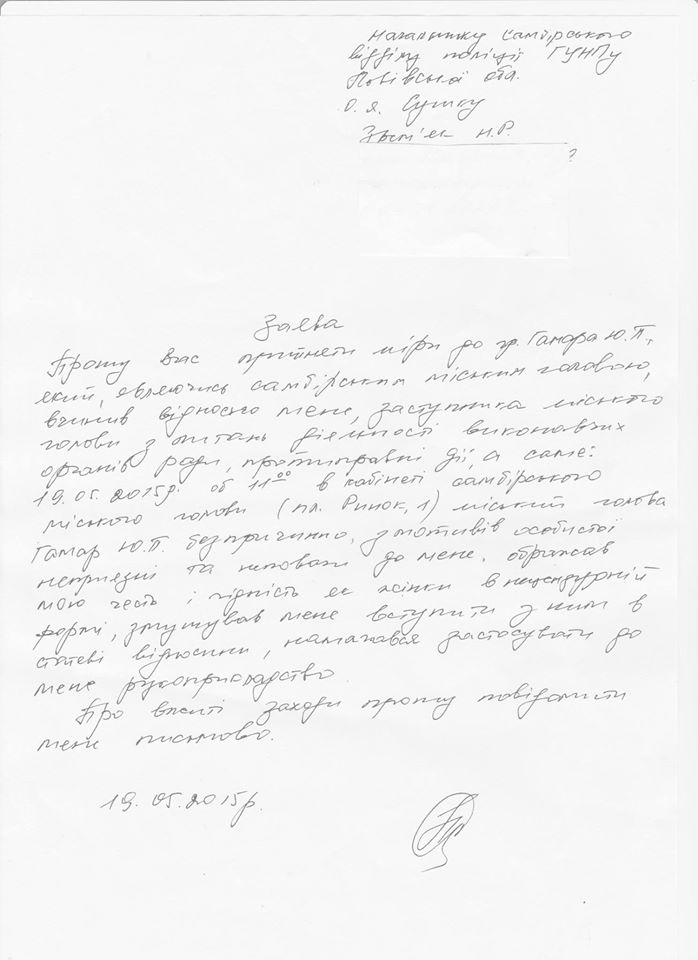 Начальнику Самбірського
відділу поліції ГУНПу
Львівській обл.
О. Я. Сушку
Н.Р.
?
Заява
Прошу Вас прийняти міри до гр. Гамара Ю.П.,
який, являючись самбірським міським головою,
вчинив відносно мене, заступника міського
голови з питань діяльності виконавчих
органів ради, протиправні дії, а саме:
19.05.2015р. об 11⁰⁰ в кабінеті самбірського
міського голови (пл. Ринок, 1) міський голова
Гамар Ю.П. безпричинно, з мотивів особистої
неприязні та неповаги до мене, ображав
мою честь і гідність як жінки в нецензурній
формі, змушував мене вступити з ним в
статеві відносини, намагався застосувати до
мене рукоприкладство.
Про вжиті заходи прошу повідомити
мене письмово.
19.05.2015р.